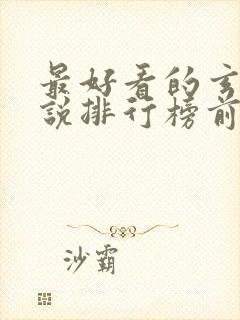 最好看的玄
說排行榜前
沙霸